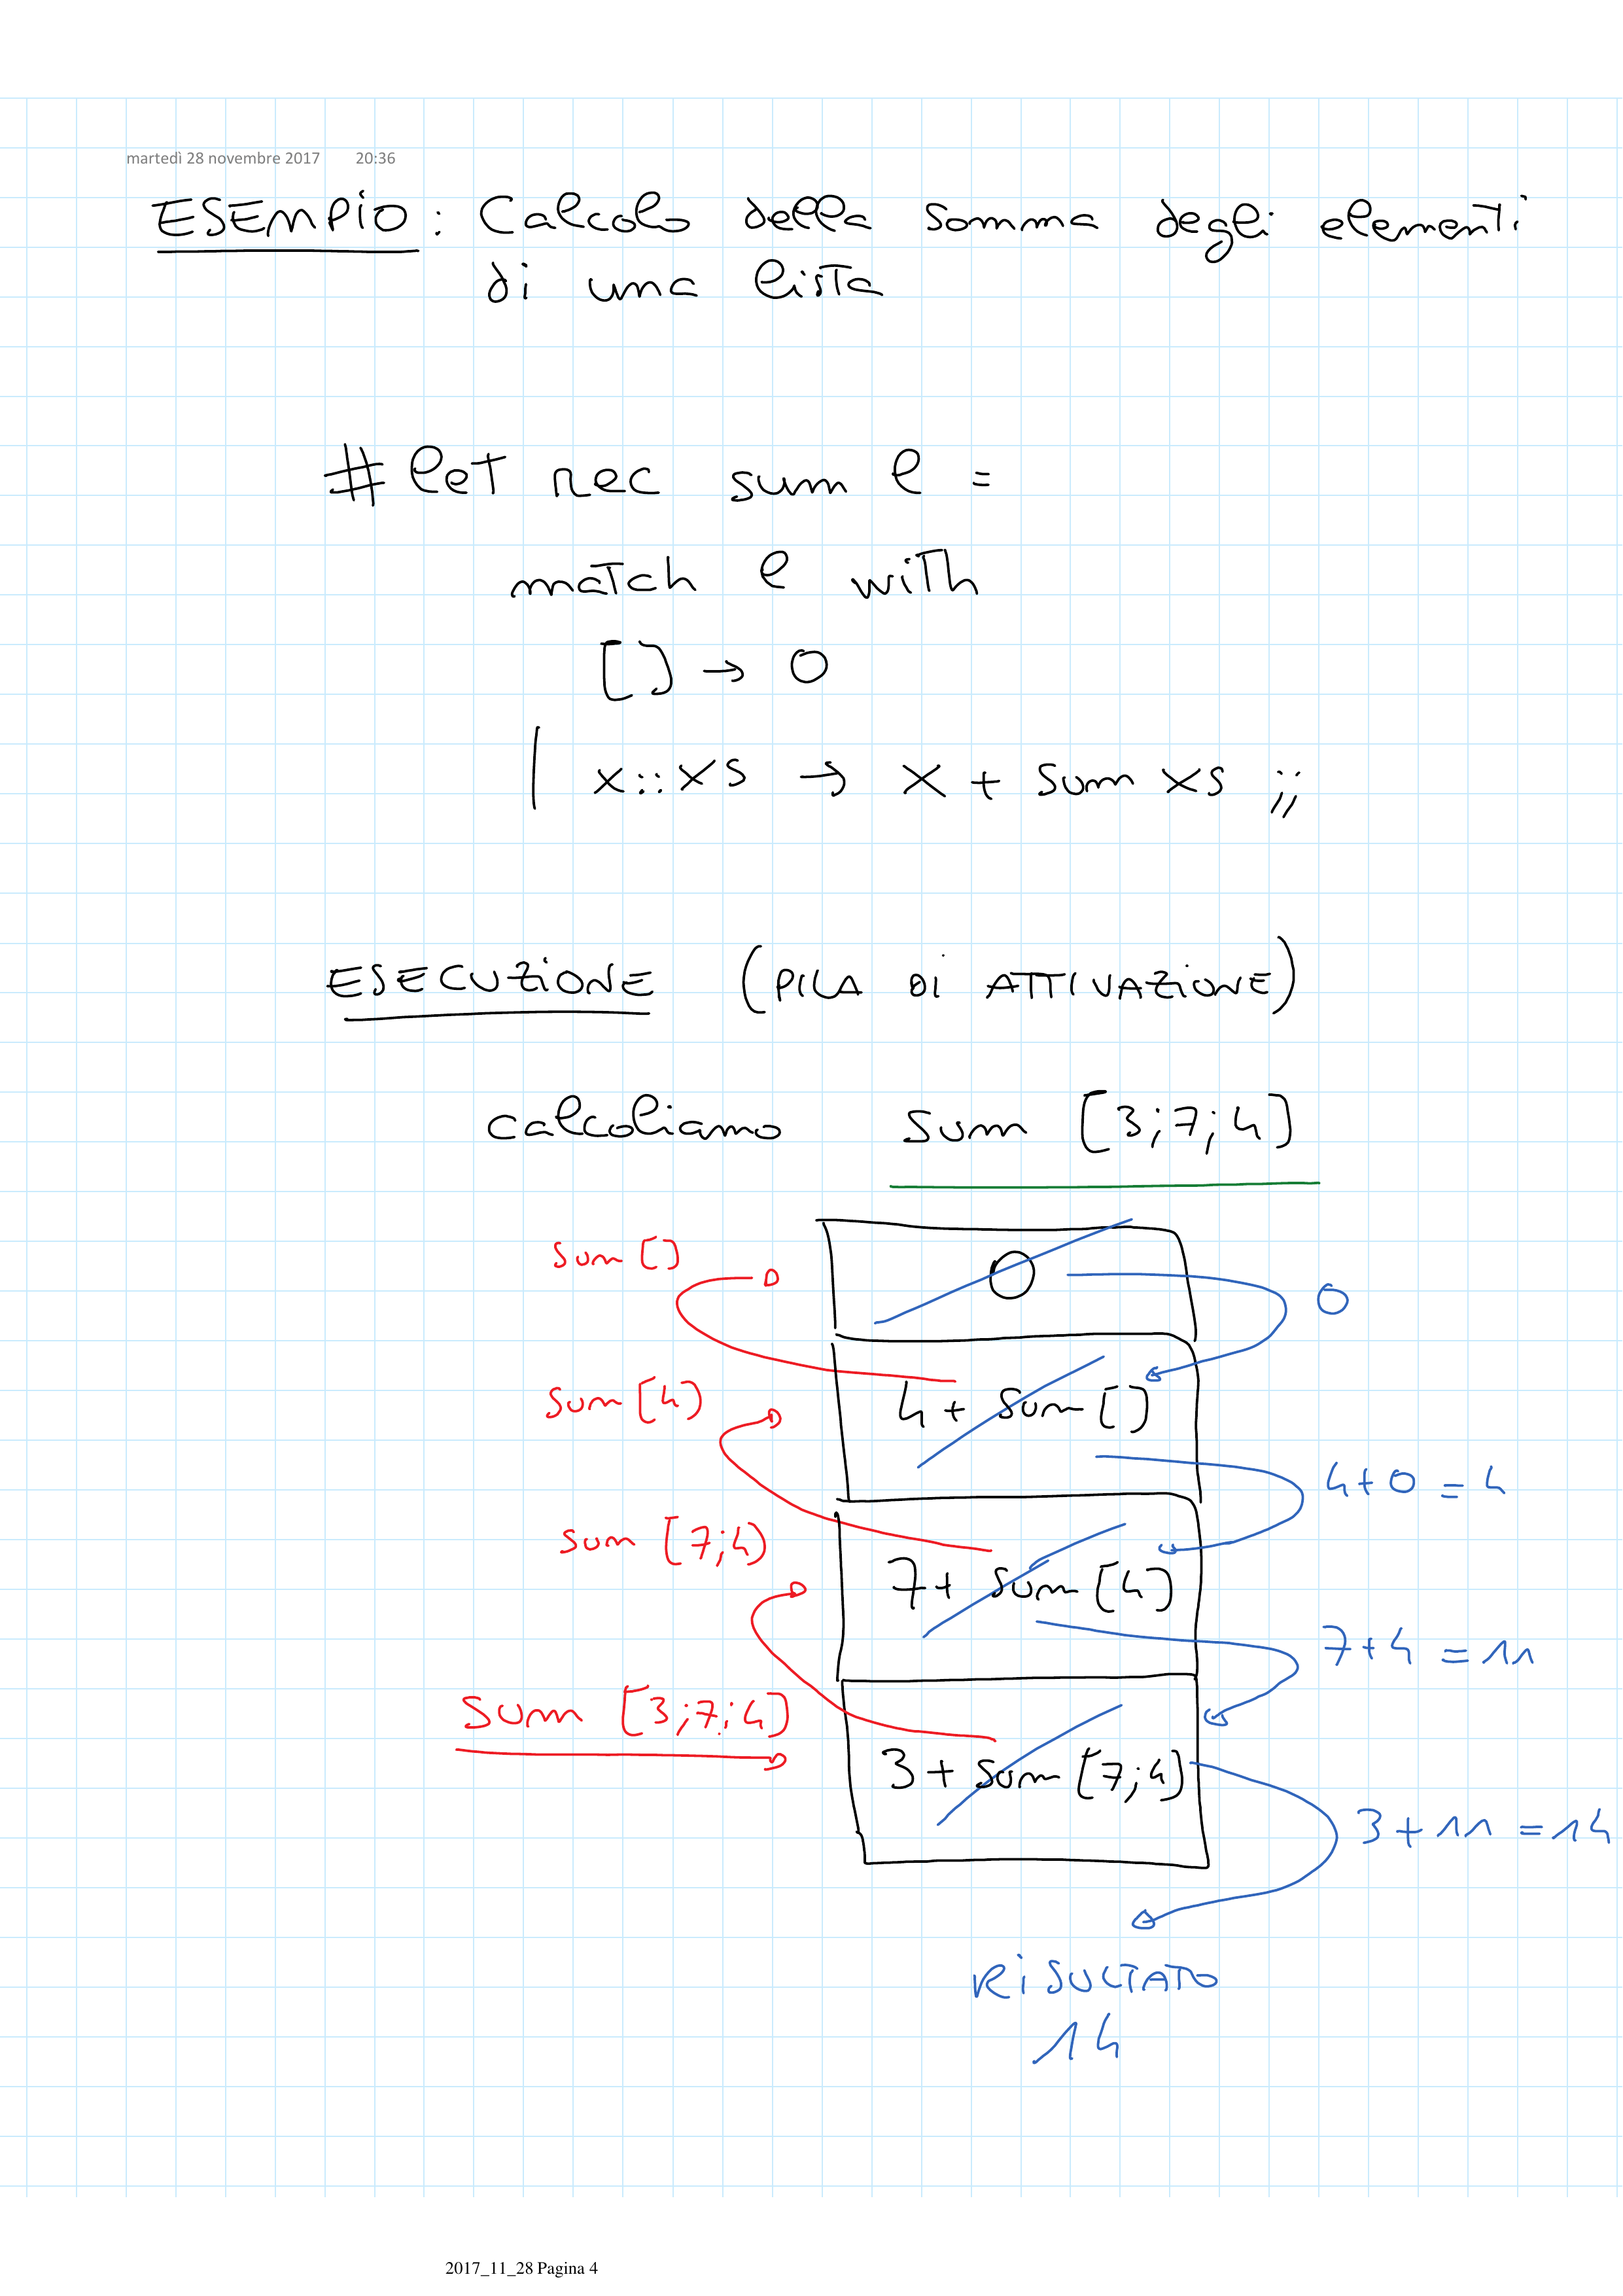 martedì 28 novembre 2017 20:36
ESEMPIO : Calcolo della somma degli elementi
di una lista
# let rec sum l =
match l with
[] → 0
| x::xs → x + sum xs ;;
ESECUZIONE (PILA DI ATTIVAZIONE)
calcoliamo sum [3;7;4]
sum []
0
0
sum [4]
4 + sum []
4+0 = 4
sum [7;4]
7+ sum [4]
7+4 = 11
sum [3;7;4]
3 + sum [7;4]
3 + 11 = 14
RISULTATO
14
2017_11_28 Pagina 4